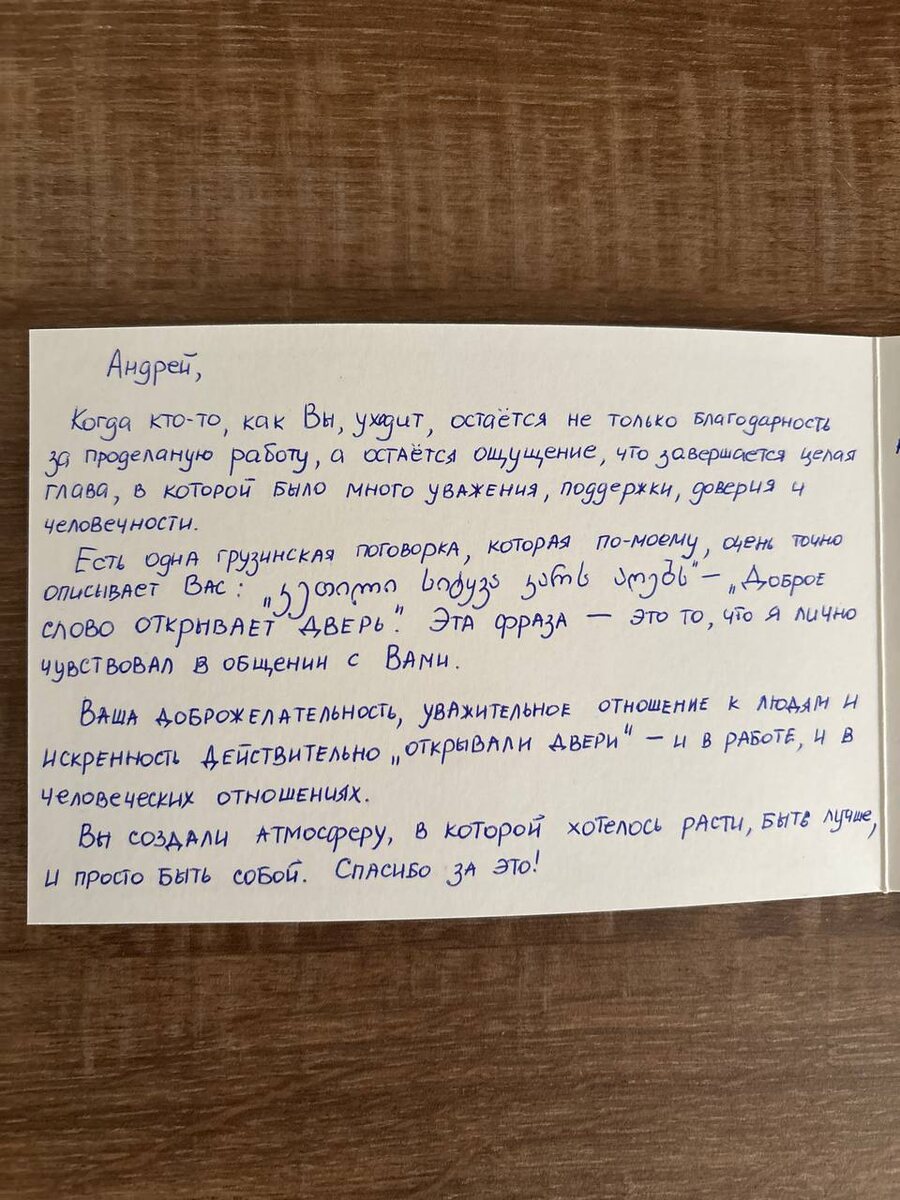 Андрей,
Когда кто-то, как Вы, уходит, остаётся не только благодарность
за проделаную работу, а остаётся ощущение, что завершается целая
глава, в которой было много уважения, поддержки, доверия и
человечности.
Есть одна грузинская поговорка, которая по-моему, очень точно
описывает Вас: „კეთილი სიტყვა კარს აღებს“ – „Доброе
слово открывает дверь“. Эта фраза – это то, что я лично
чувствовал в общении с Вами.
Ваша доброжелательность, уважительное отношение к людям и
искренность действительно „открывали двери“ – и в работе, и в
человеческих отношениях.
Вы создали атмосферу, в которой хотелось расти, быть лучше,
и просто быть собой. Спасибо за это!